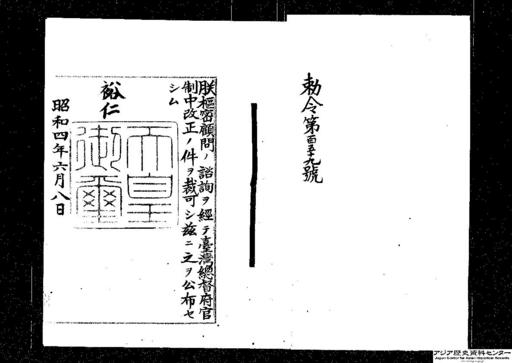 勅令第百五十九號
朕樞密顧問ノ諮詢ヲ經テ臺灣總督府官
制中改正ノ件ヲ裁可シ茲ニ之ヲ公布セ
シム
裕仁
天皇
御璽
昭和四年六月八日
アジア歴史資料センター
Japan Center for Asian Historical Records